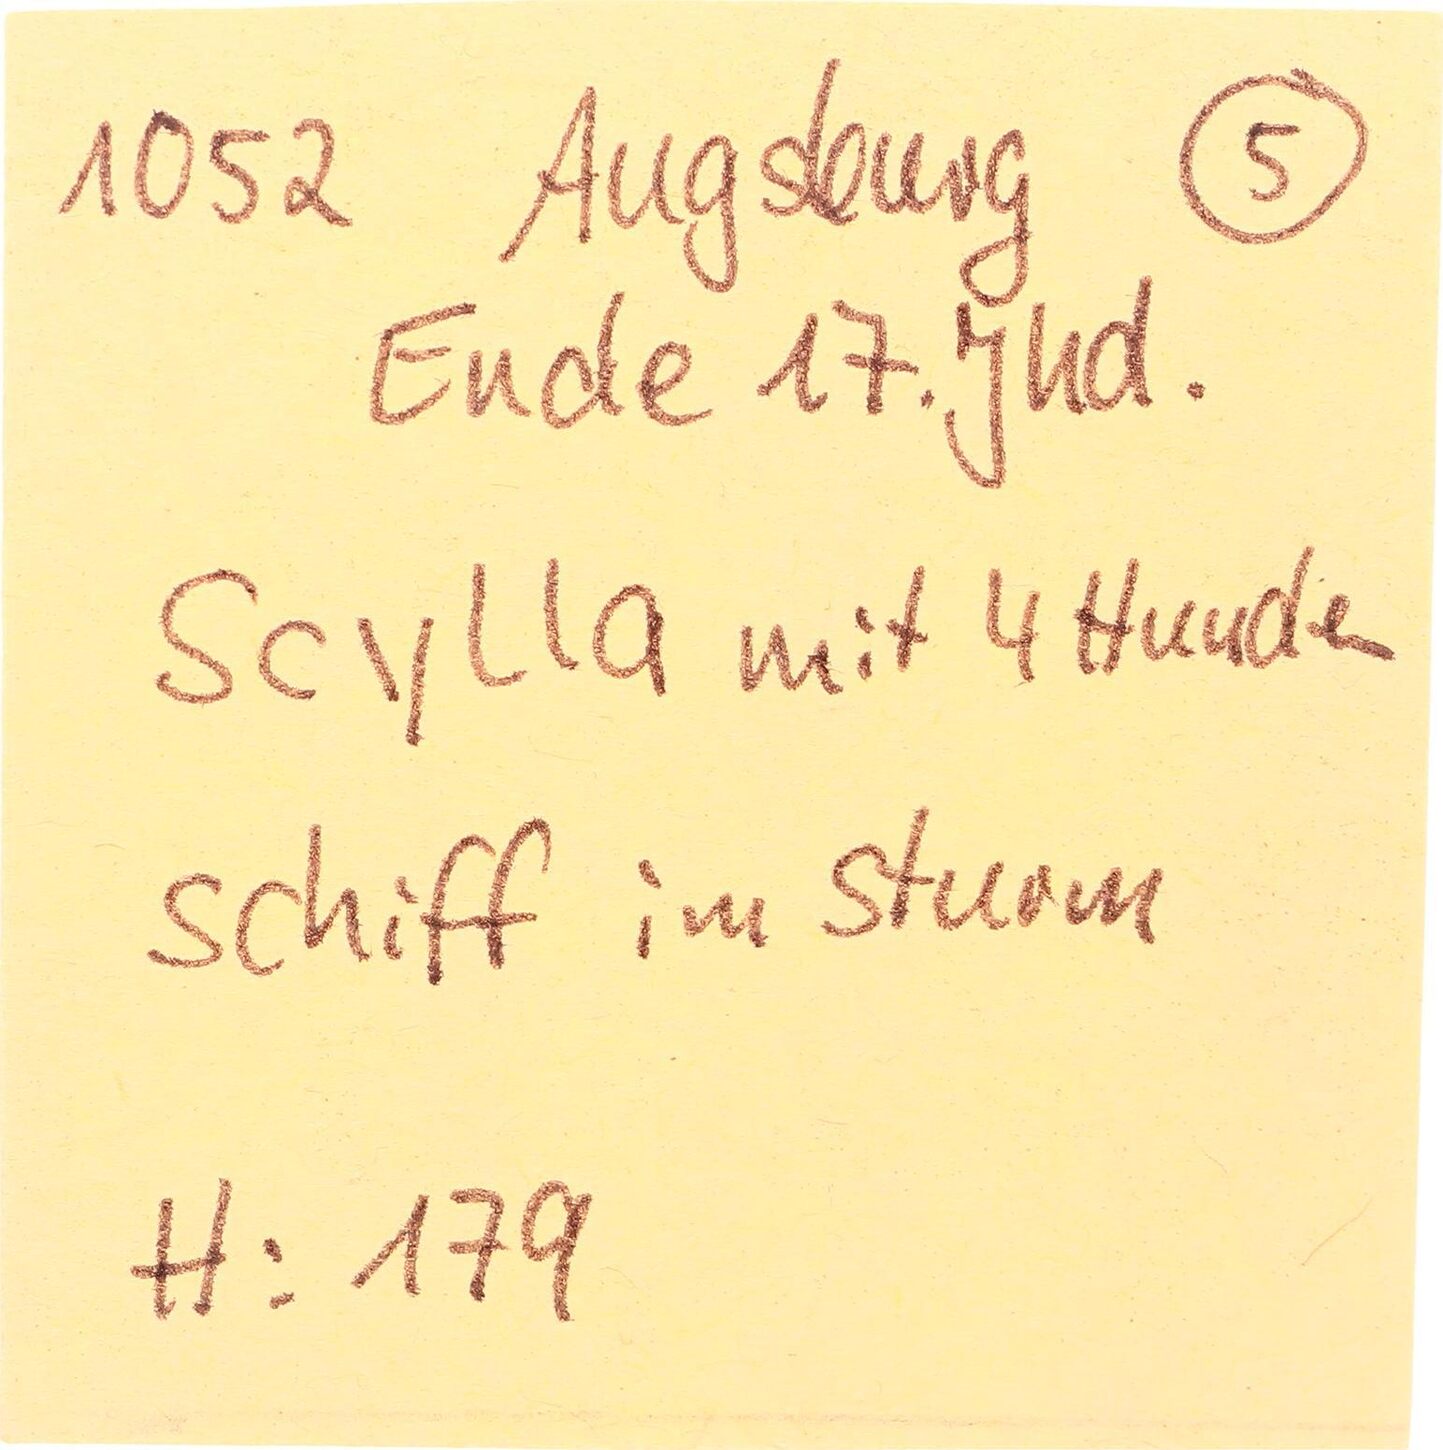 1052 Augsburg 5
Ende 17. Jhd.
Scylla mit 4 Hunden
schiff im Sturm
H: 179